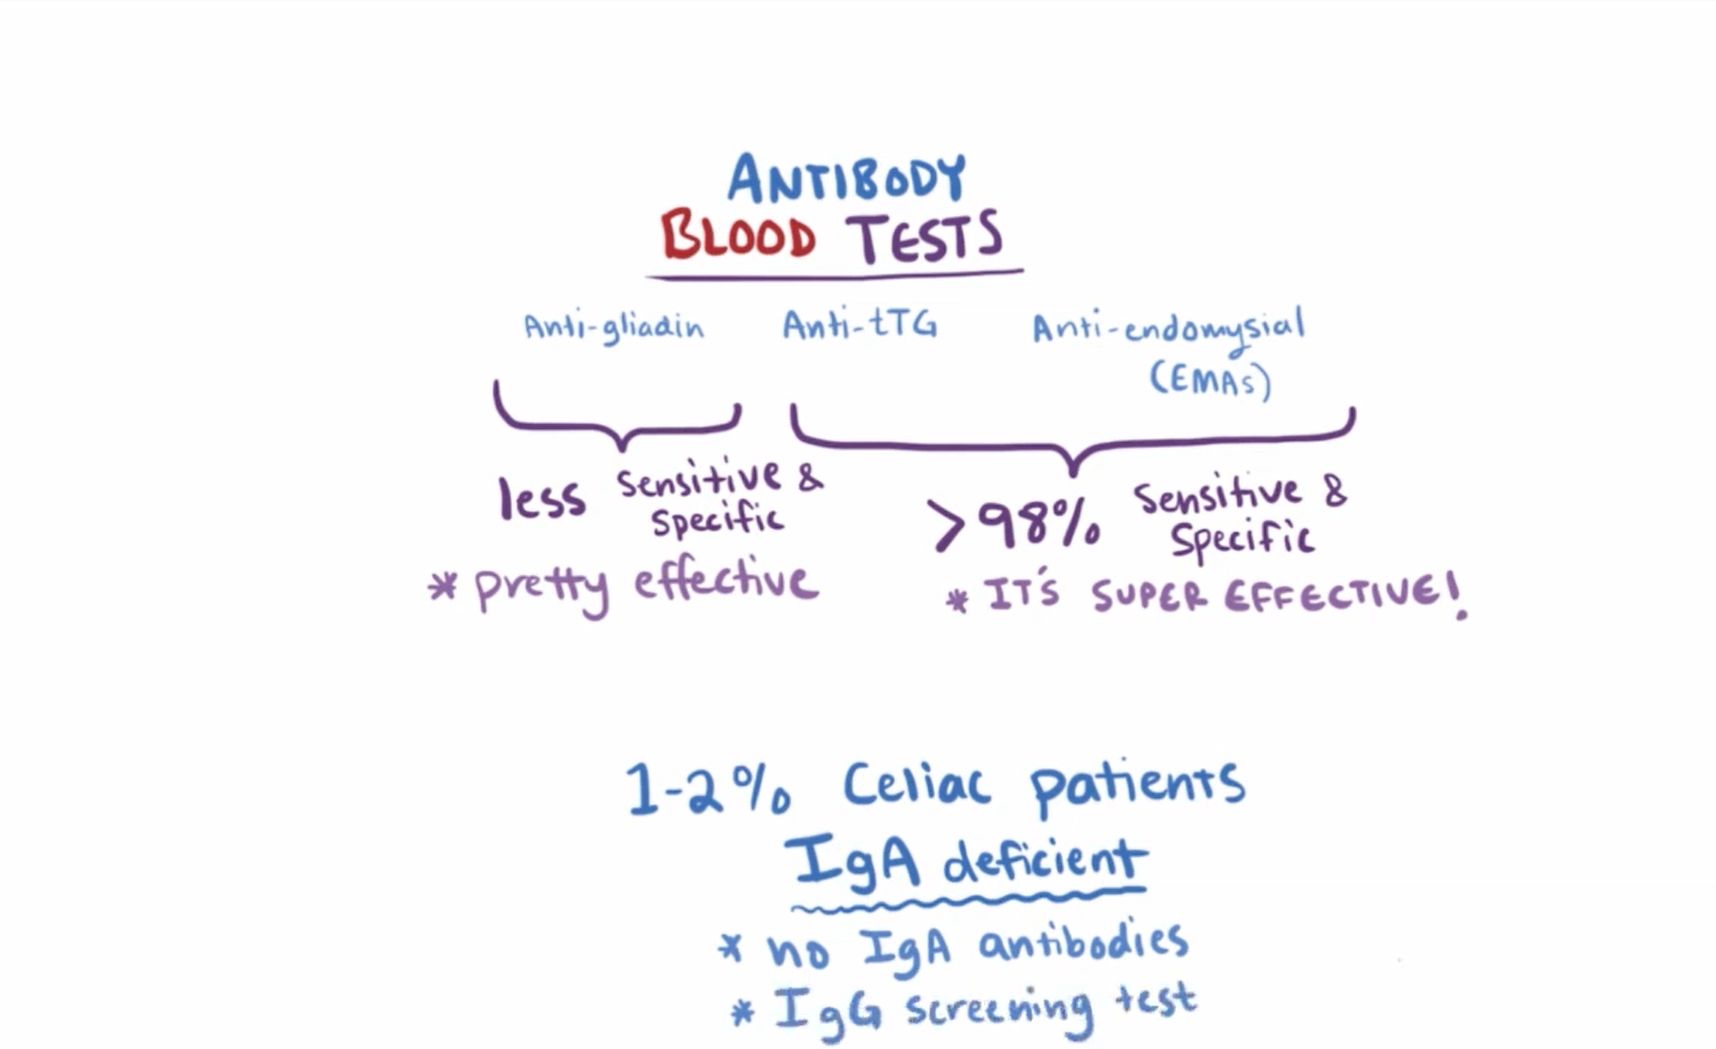 ANTIBODY
BLOOD TESTS
Anti-gliadin Anti-tTG Anti-endomysial
(EMAs)
less Sensitive &
Specific
>98% Sensitive &
Specific
* pretty effective
* IT'S SUPER EFFECTIVE!
1-2% Celiac patients
IgA deficient
* no IgA antibodies
* IgG screening test